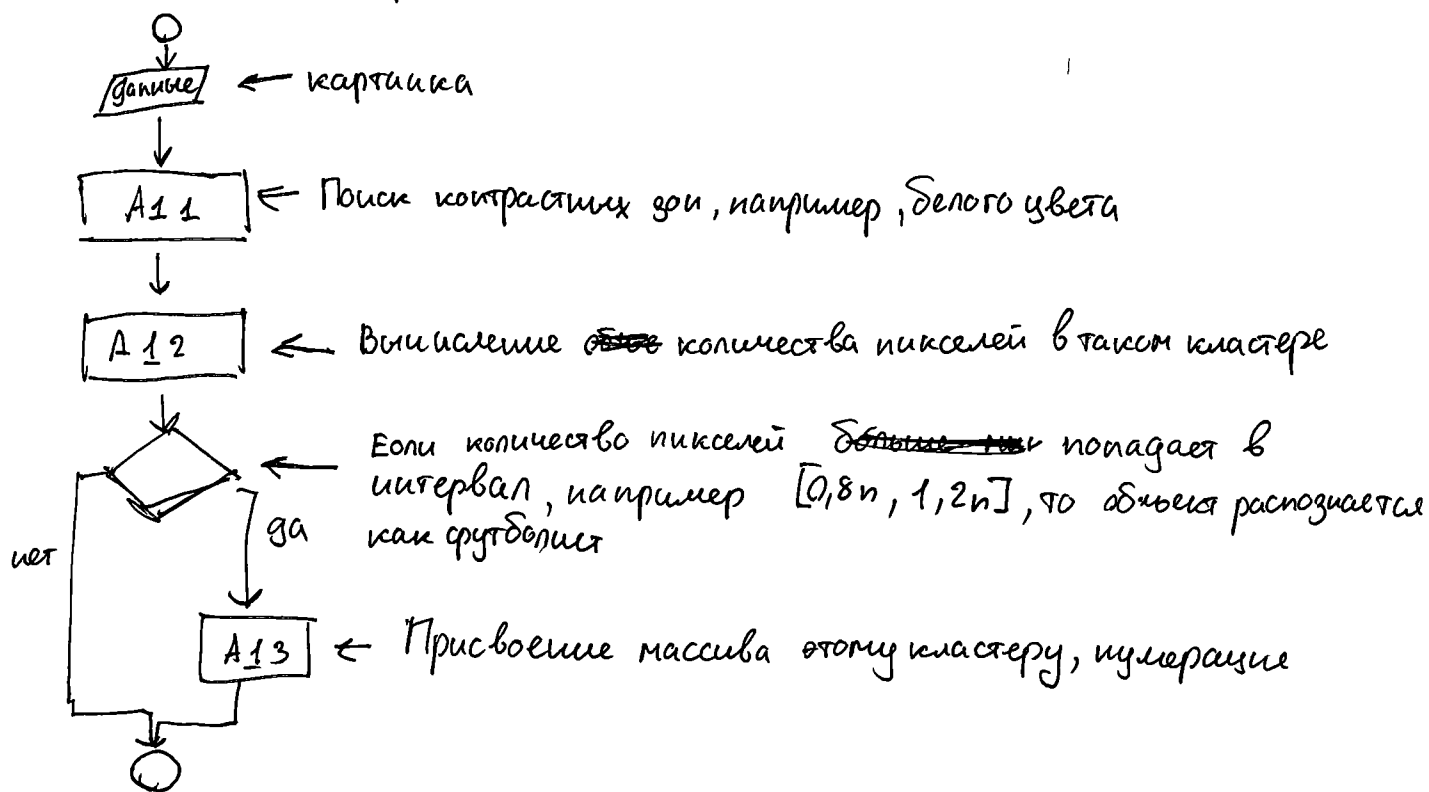 данные ← картинка
А11 ← Поиск контрастных зон, например, белого цвета
А12 ← Вычисление количества пикселей в таком кластере
Если количество пикселей попадает в
интервал, например [0,8n, 1,2n], то объект распознается
как футболист
нет
да
А13 ← Присвоение массива этому кластеру, нумерация